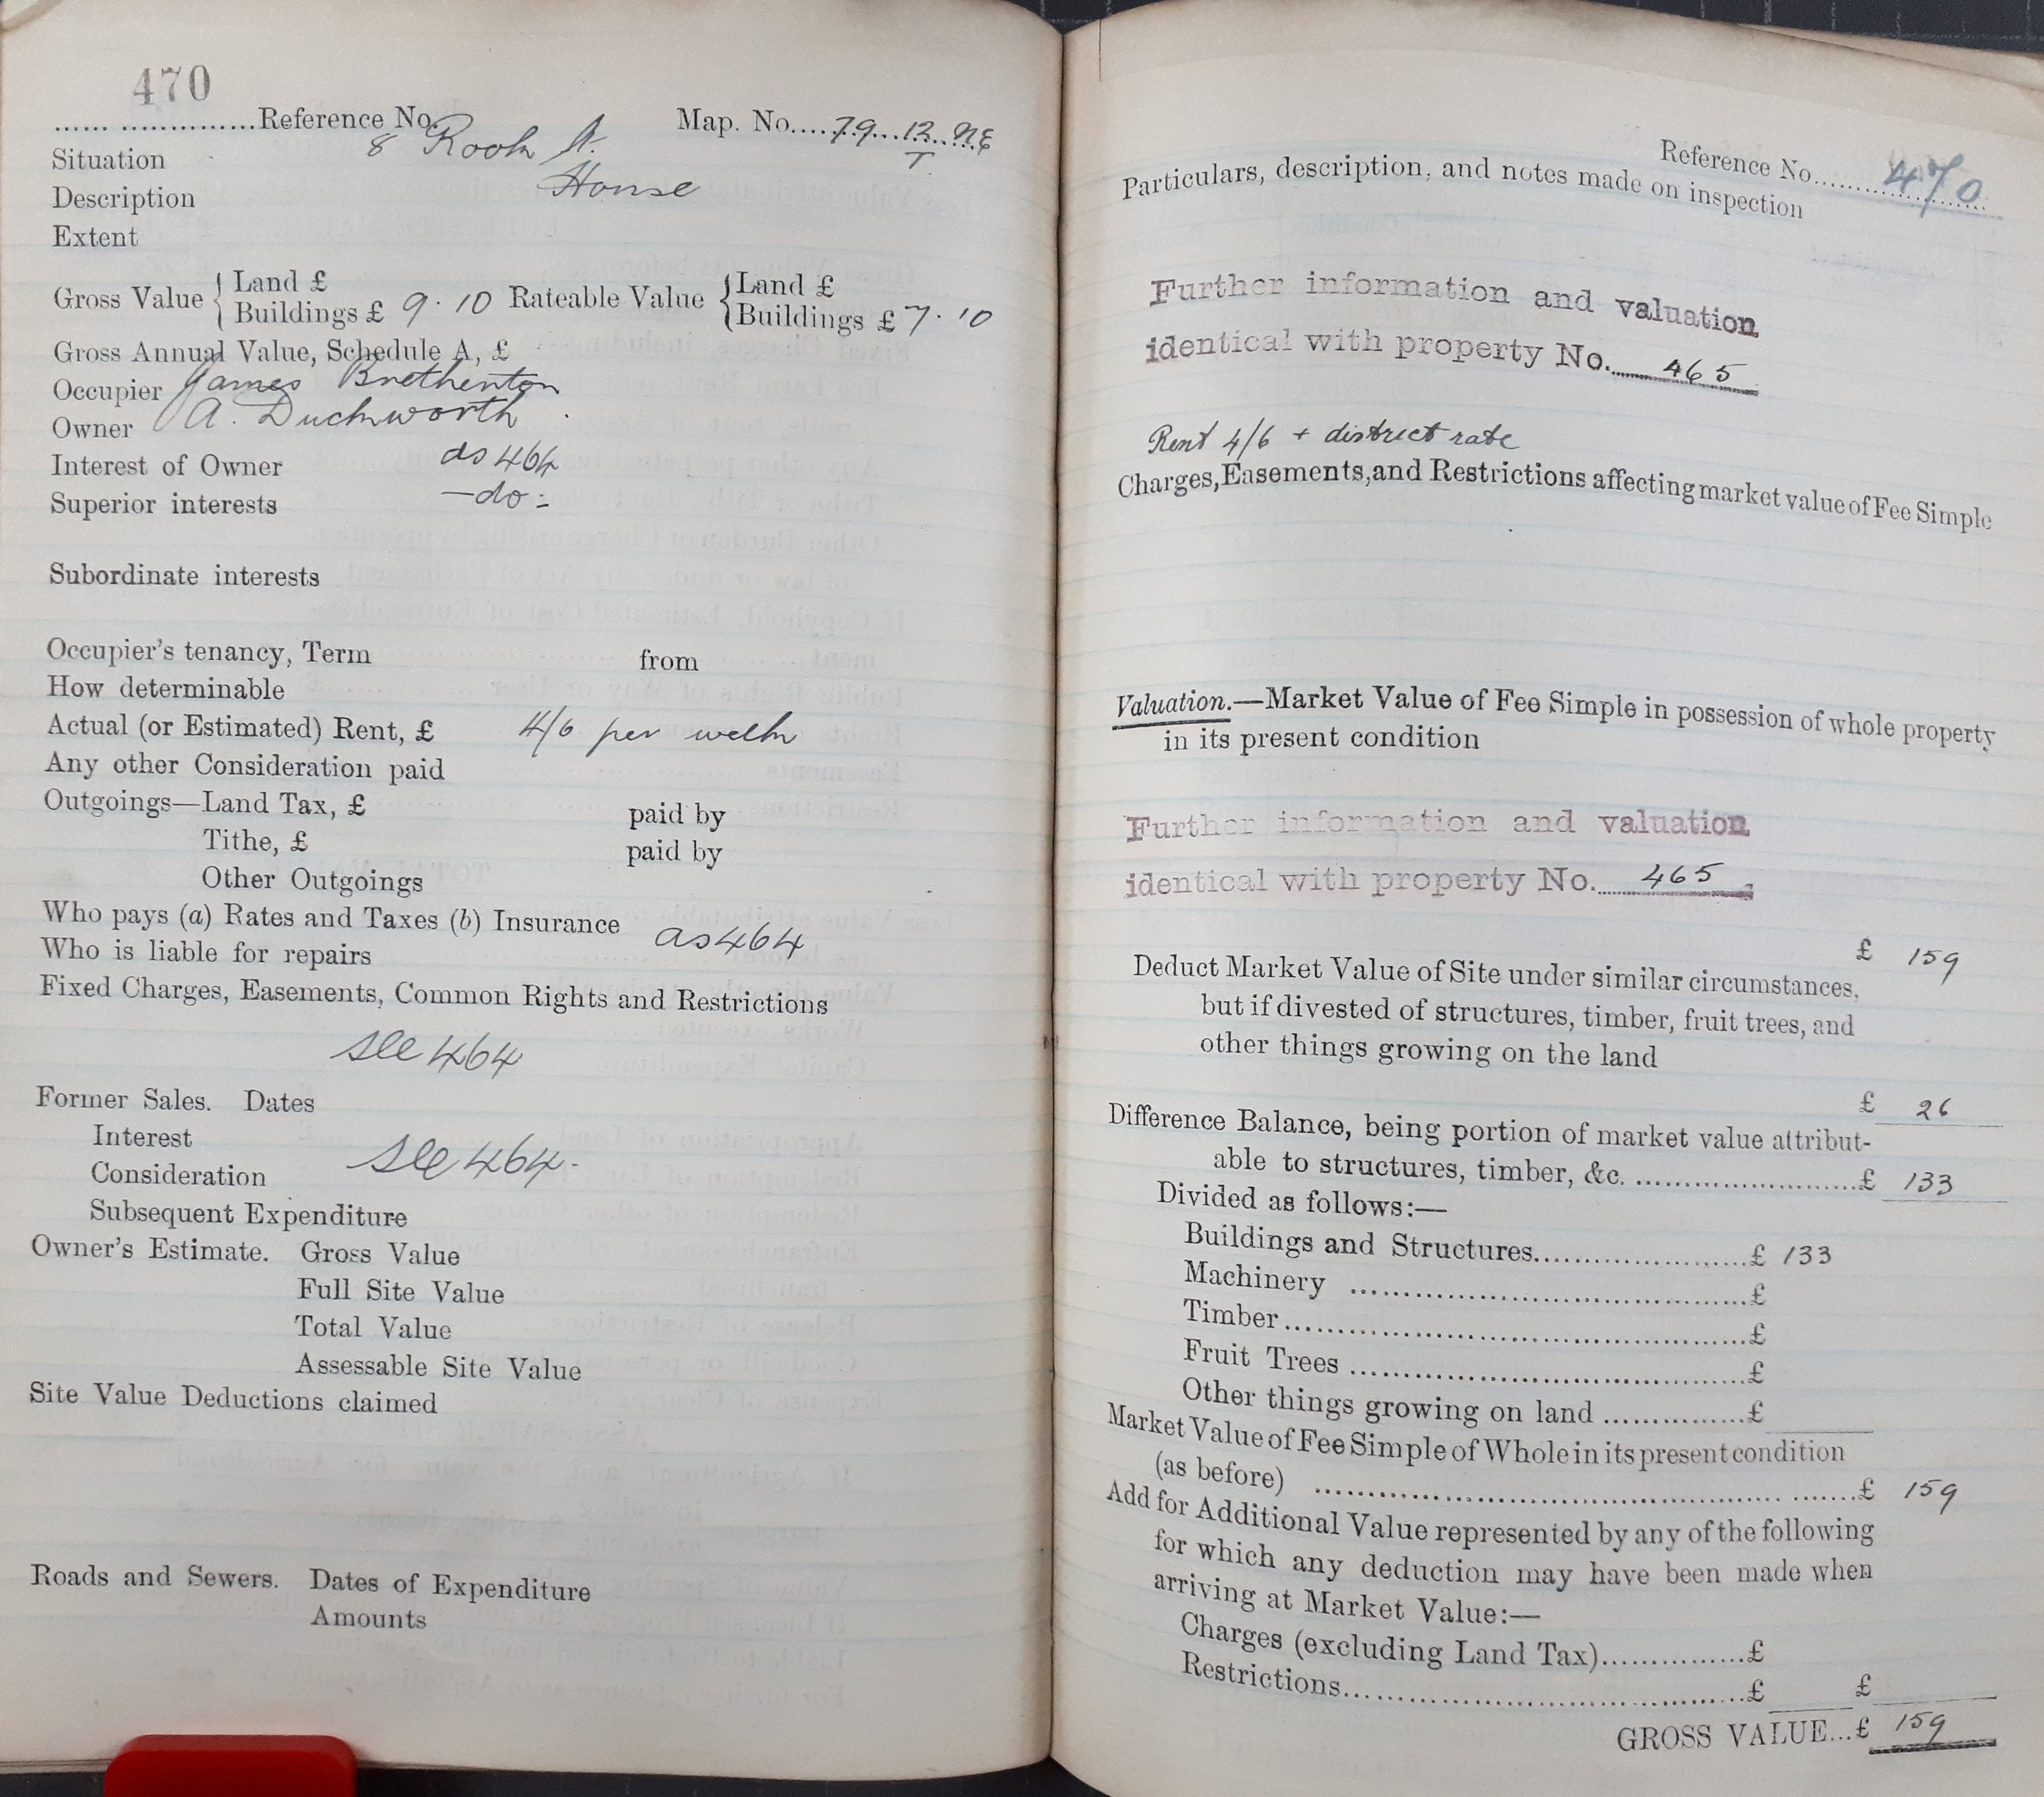 470
..................Reference No. Map. No....79...12..NE
T
Situation 8 Rook St.
Description House
Extent
Gross Value { Land £ Rateable Value { Land £
Buildings £ 9.10 Buildings £ 7.10
Gross Annual Value, Schedule A, £
Occupier James Bretherton
Owner A. Duckworth
Interest of Owner as 464
Superior interests —do—
Subordinate interests
Occupier's tenancy, Term from
How determinable
Actual (or Estimated) Rent, £ 4/6 per week
Any other Consideration paid
Outgoings—Land Tax, £ paid by
Tithe, £ paid by
Other Outgoings
Who pays (a) Rates and Taxes (b) Insurance as 464
Who is liable for repairs
Fixed Charges, Easements, Common Rights and Restrictions
see 464
Former Sales. Dates
Interest
see 464.
Consideration
Subsequent Expenditure
Owner's Estimate. Gross Value
Full Site Value
Total Value
Assessable Site Value
Site Value Deductions claimed
Roads and Sewers. Dates of Expenditure
Amounts
Reference No.......... 470
Particulars, description, and notes made on inspection
Further information and valuation
identical with property No. 465
Rent 4/6 + district rate
Charges, Easements, and Restrictions affecting market value of Fee Simple
Valuation.—Market Value of Fee Simple in possession of whole property
in its present condition
Further information and valuation
identical with property No. 465
£ 159
Deduct Market Value of Site under similar circumstances,
but if divested of structures, timber, fruit trees, and
other things growing on the land
£ 26
Difference Balance, being portion of market value attribut-
able to structures, timber, &c. ........................£ 133
Divided as follows:—
Buildings and Structures......................£ 133
Machinery ........................................£
Timber..............................................£
Fruit Trees ........................................£
Other things growing on land ...............£
Market Value of Fee Simple of Whole in its present condition
(as before) ......................................................£ 159
Add for Additional Value represented by any of the following
for which any deduction may have been made when
arriving at Market Value:—
Charges (excluding Land Tax)...............£
Restrictions.........................................£ £
GROSS VALUE...£ 159